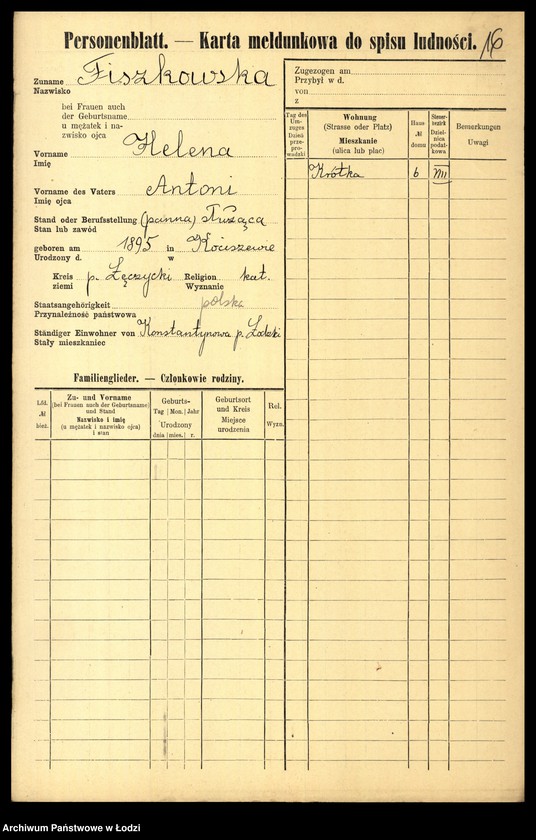 Personenblatt. — Karta meldunkowa do spisu ludności. 16
Zuname Fiszkowska
Nazwisko
bei Frauen auch
der Geburtsname
u mężatek i na-
zwisko ojca
Vorname Helena
Imię
Vorname des Vaters Antoni
Imię ojca
Stand oder Berufsstellung (panna) służąca
Stan lub zawód
geboren am 1895 in Kociszewie
Urodzony d. w
Kreis p. Łęczycki Religion kat.
ziemi Wyznanie
Staatsangehörigkeit polska
Przynależność państwowa
Ständiger Einwohner von Konstantynowa p. Łódzki
Stały mieszkaniec
Zugezogen am
Przybył w d.
von
z
Tag des Um-
zuges
Dzień
prze-
pro-
wadzki
Wohnung
(Strasse oder Platz)
Mieszkanie
(ulica lub plac)
Haus
№
domu
Steuer-
bezirk
Dziel-
nica
podat-
kowa
Bemerkungen
Uwagi
Krótka 6 VIII
Familienglieder. — Członkowie rodziny.
Lfd.
№
bież.
Zu- und Vorname
(bei Frauen auch der Geburtsname)
und Stand
Nazwisko i Imię
(u mężatek i nazwisko ojca)
i stan
Geburts-
Tag Mon. Jahr
Urodzony
dnia mies. r.
Geburtsort
und Kreis
Miejsce
urodzenia
Rel.
Wyzn.
Archiwum Państwowe w Łodzi